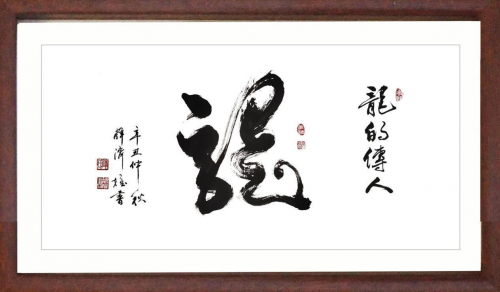 龍的傳人
龍
辛丑仲秋
書